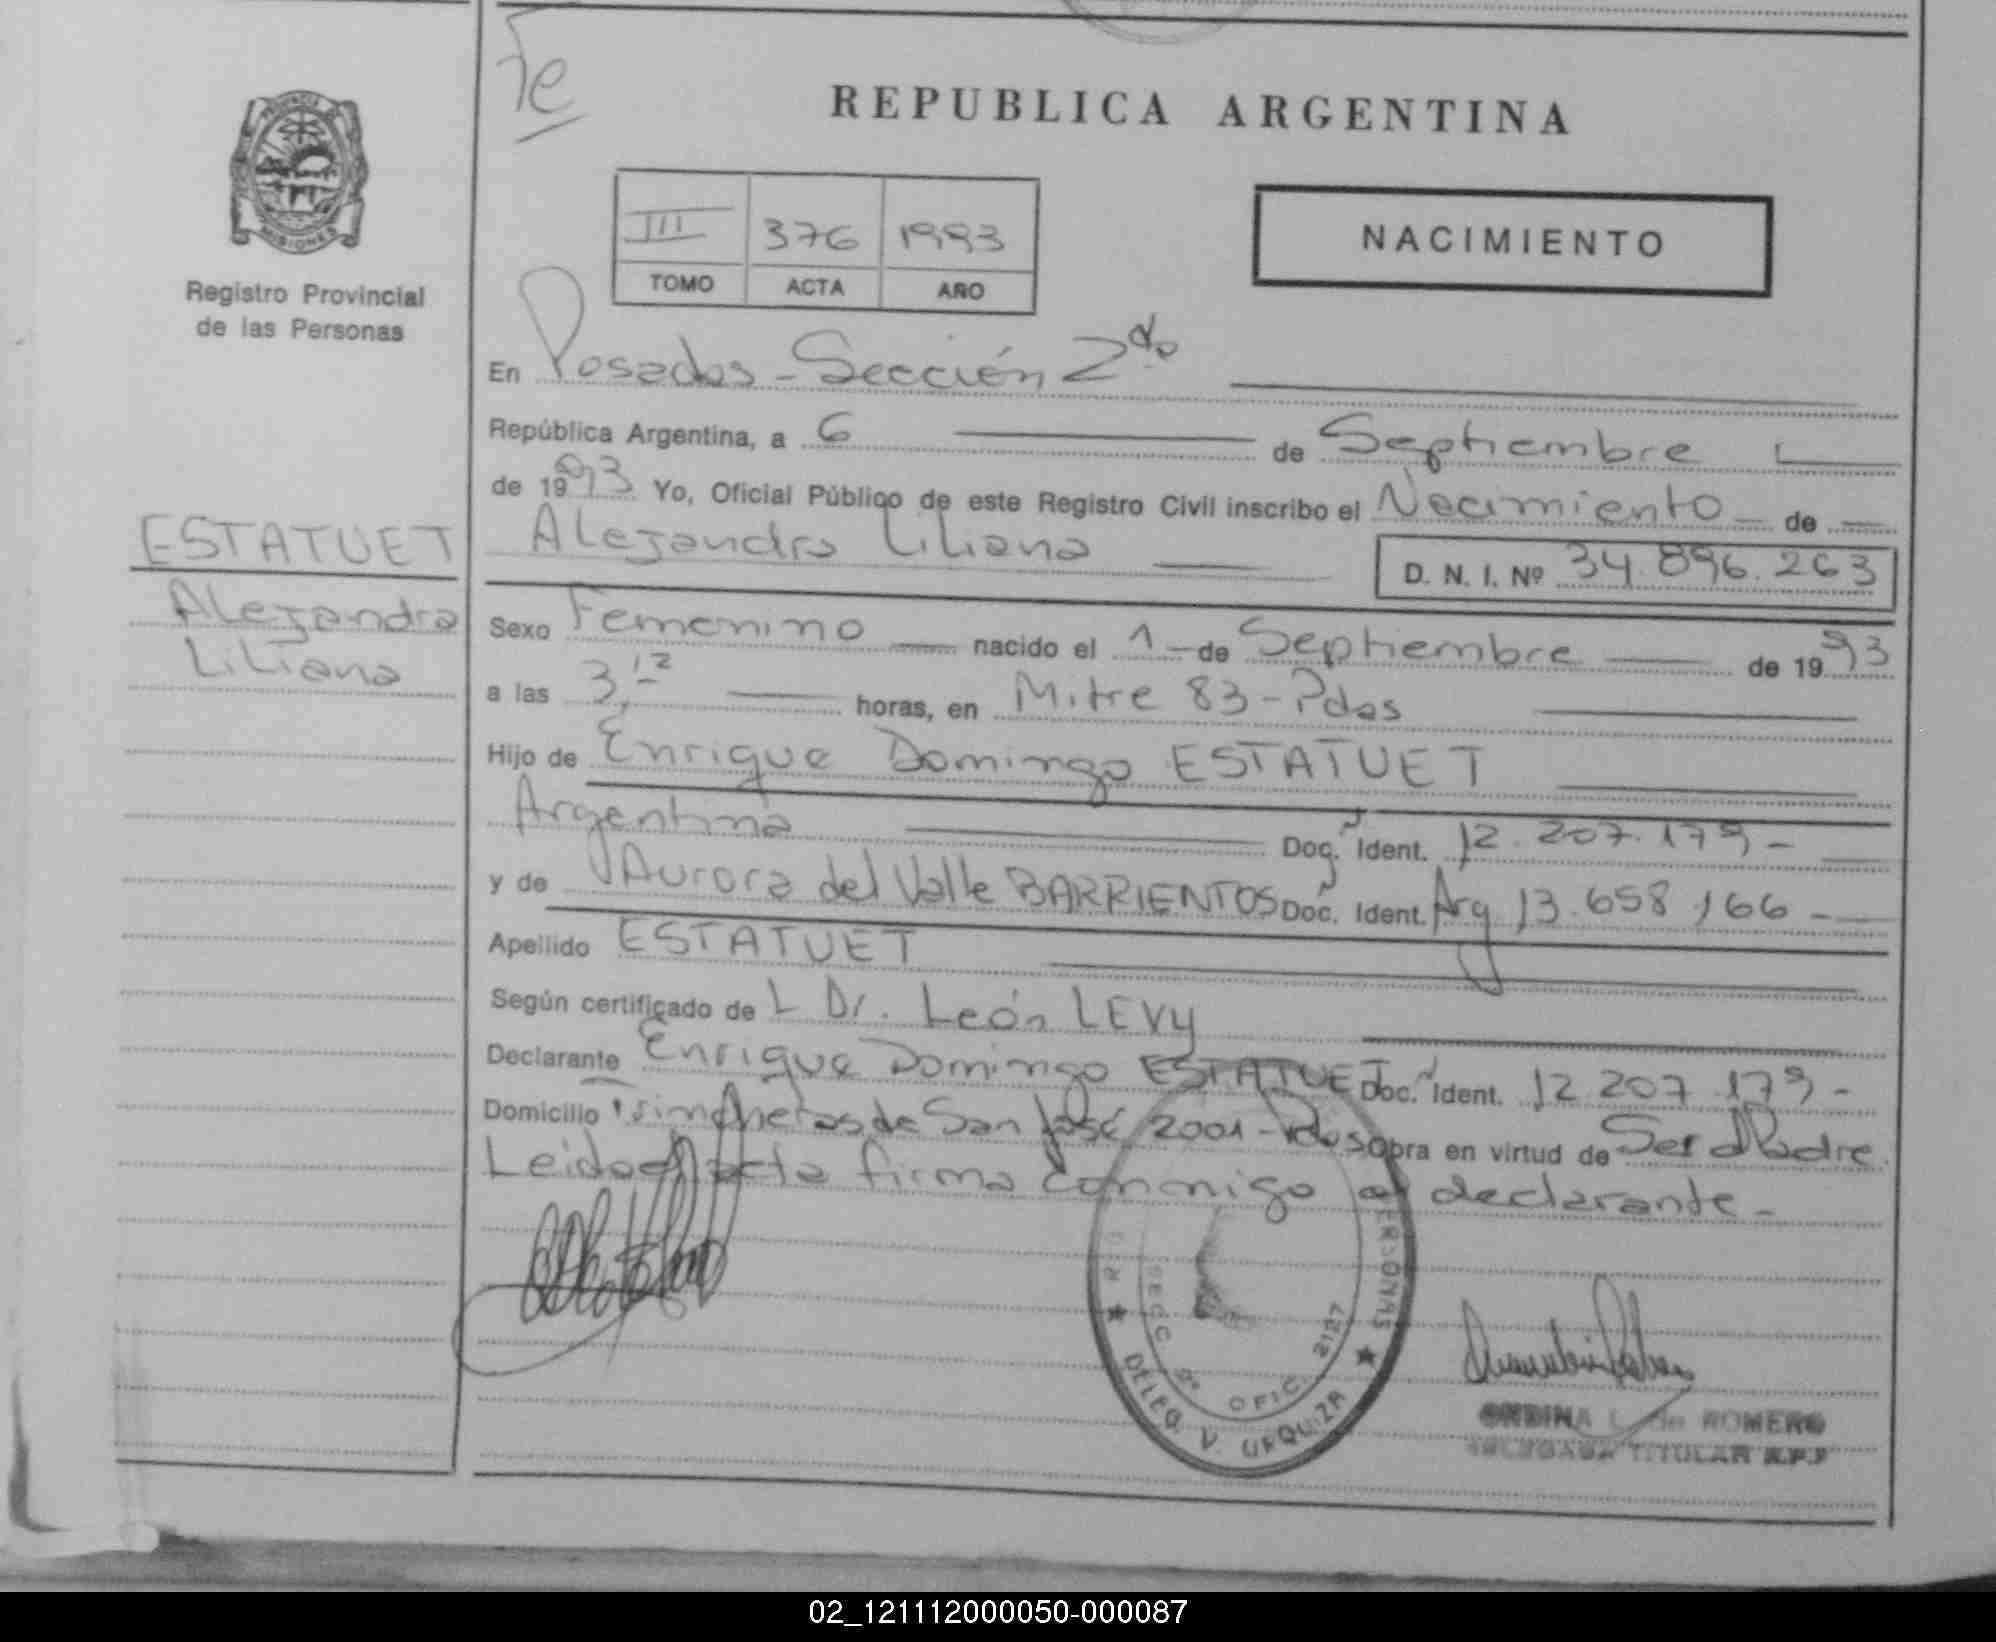 Fe
REPUBLICA ARGENTINA
PROVINCIA DE
MISIONES
Registro Provincial
de las Personas
III 376 1993
TOMO ACTA AÑO
NACIMIENTO
En Posadas - Sección 2da
República Argentina, a 6 de Septiembre
de 1993 Yo, Oficial Público de este Registro Civil inscribo el Nacimiento de
ESTATUET
Alejandra
Liliana
Alejandra Liliana D. N. I. Nº 34.896.263
Sexo Femenino nacido el 1 de Septiembre de 1993
a las 3,12 horas, en Mitre 83 - Pdas
Hijo de Enrique Domingo ESTATUET
Argentina Doc. Ident. 12.207.179 -
y de Aurora del Valle BARRIENTOS Doc. Ident. Arg 13.658.166 -
Apellido ESTATUET
Según certificado de L Dr. León LEVY
Declarante Enrique Domingo ESTATUET Doc. Ident. 12.207.179 -
Domicilio Trincheras de San José 2001 - Pdas Obra en virtud de Ser Padre
Leida el acta firma conmigo el declarante -
PERSONAS
SECC 2º OFIC. 2127
DELEG. V. URQUIZA
ONDINA de ROMERO
DELEGADA TITULAR R.P.P
02_121112000050-000087